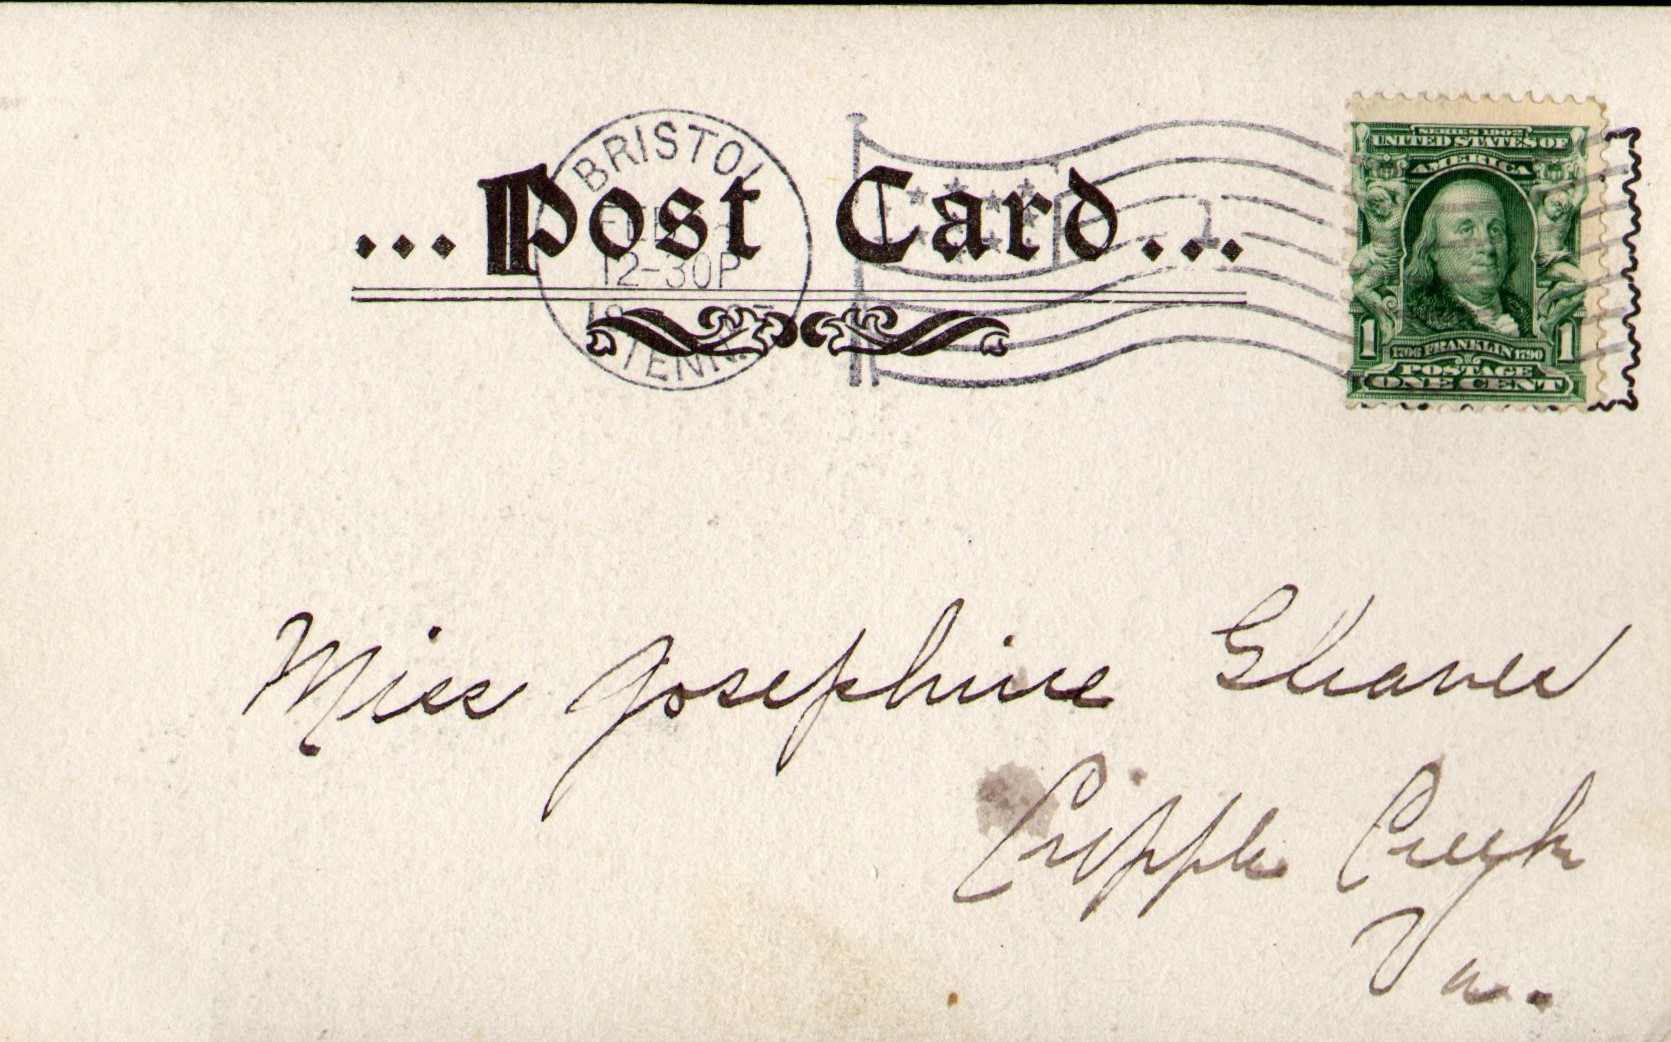 ...Post Card...
BRISTOL
12-30P
TENN.
1
SERIES 1902
UNITED STATES OF
AMERICA
1 1
1706 FRANKLIN 1790
POSTAGE
ONE CENT
Miss Josephine Gleaves
Cripple Creek
Va.